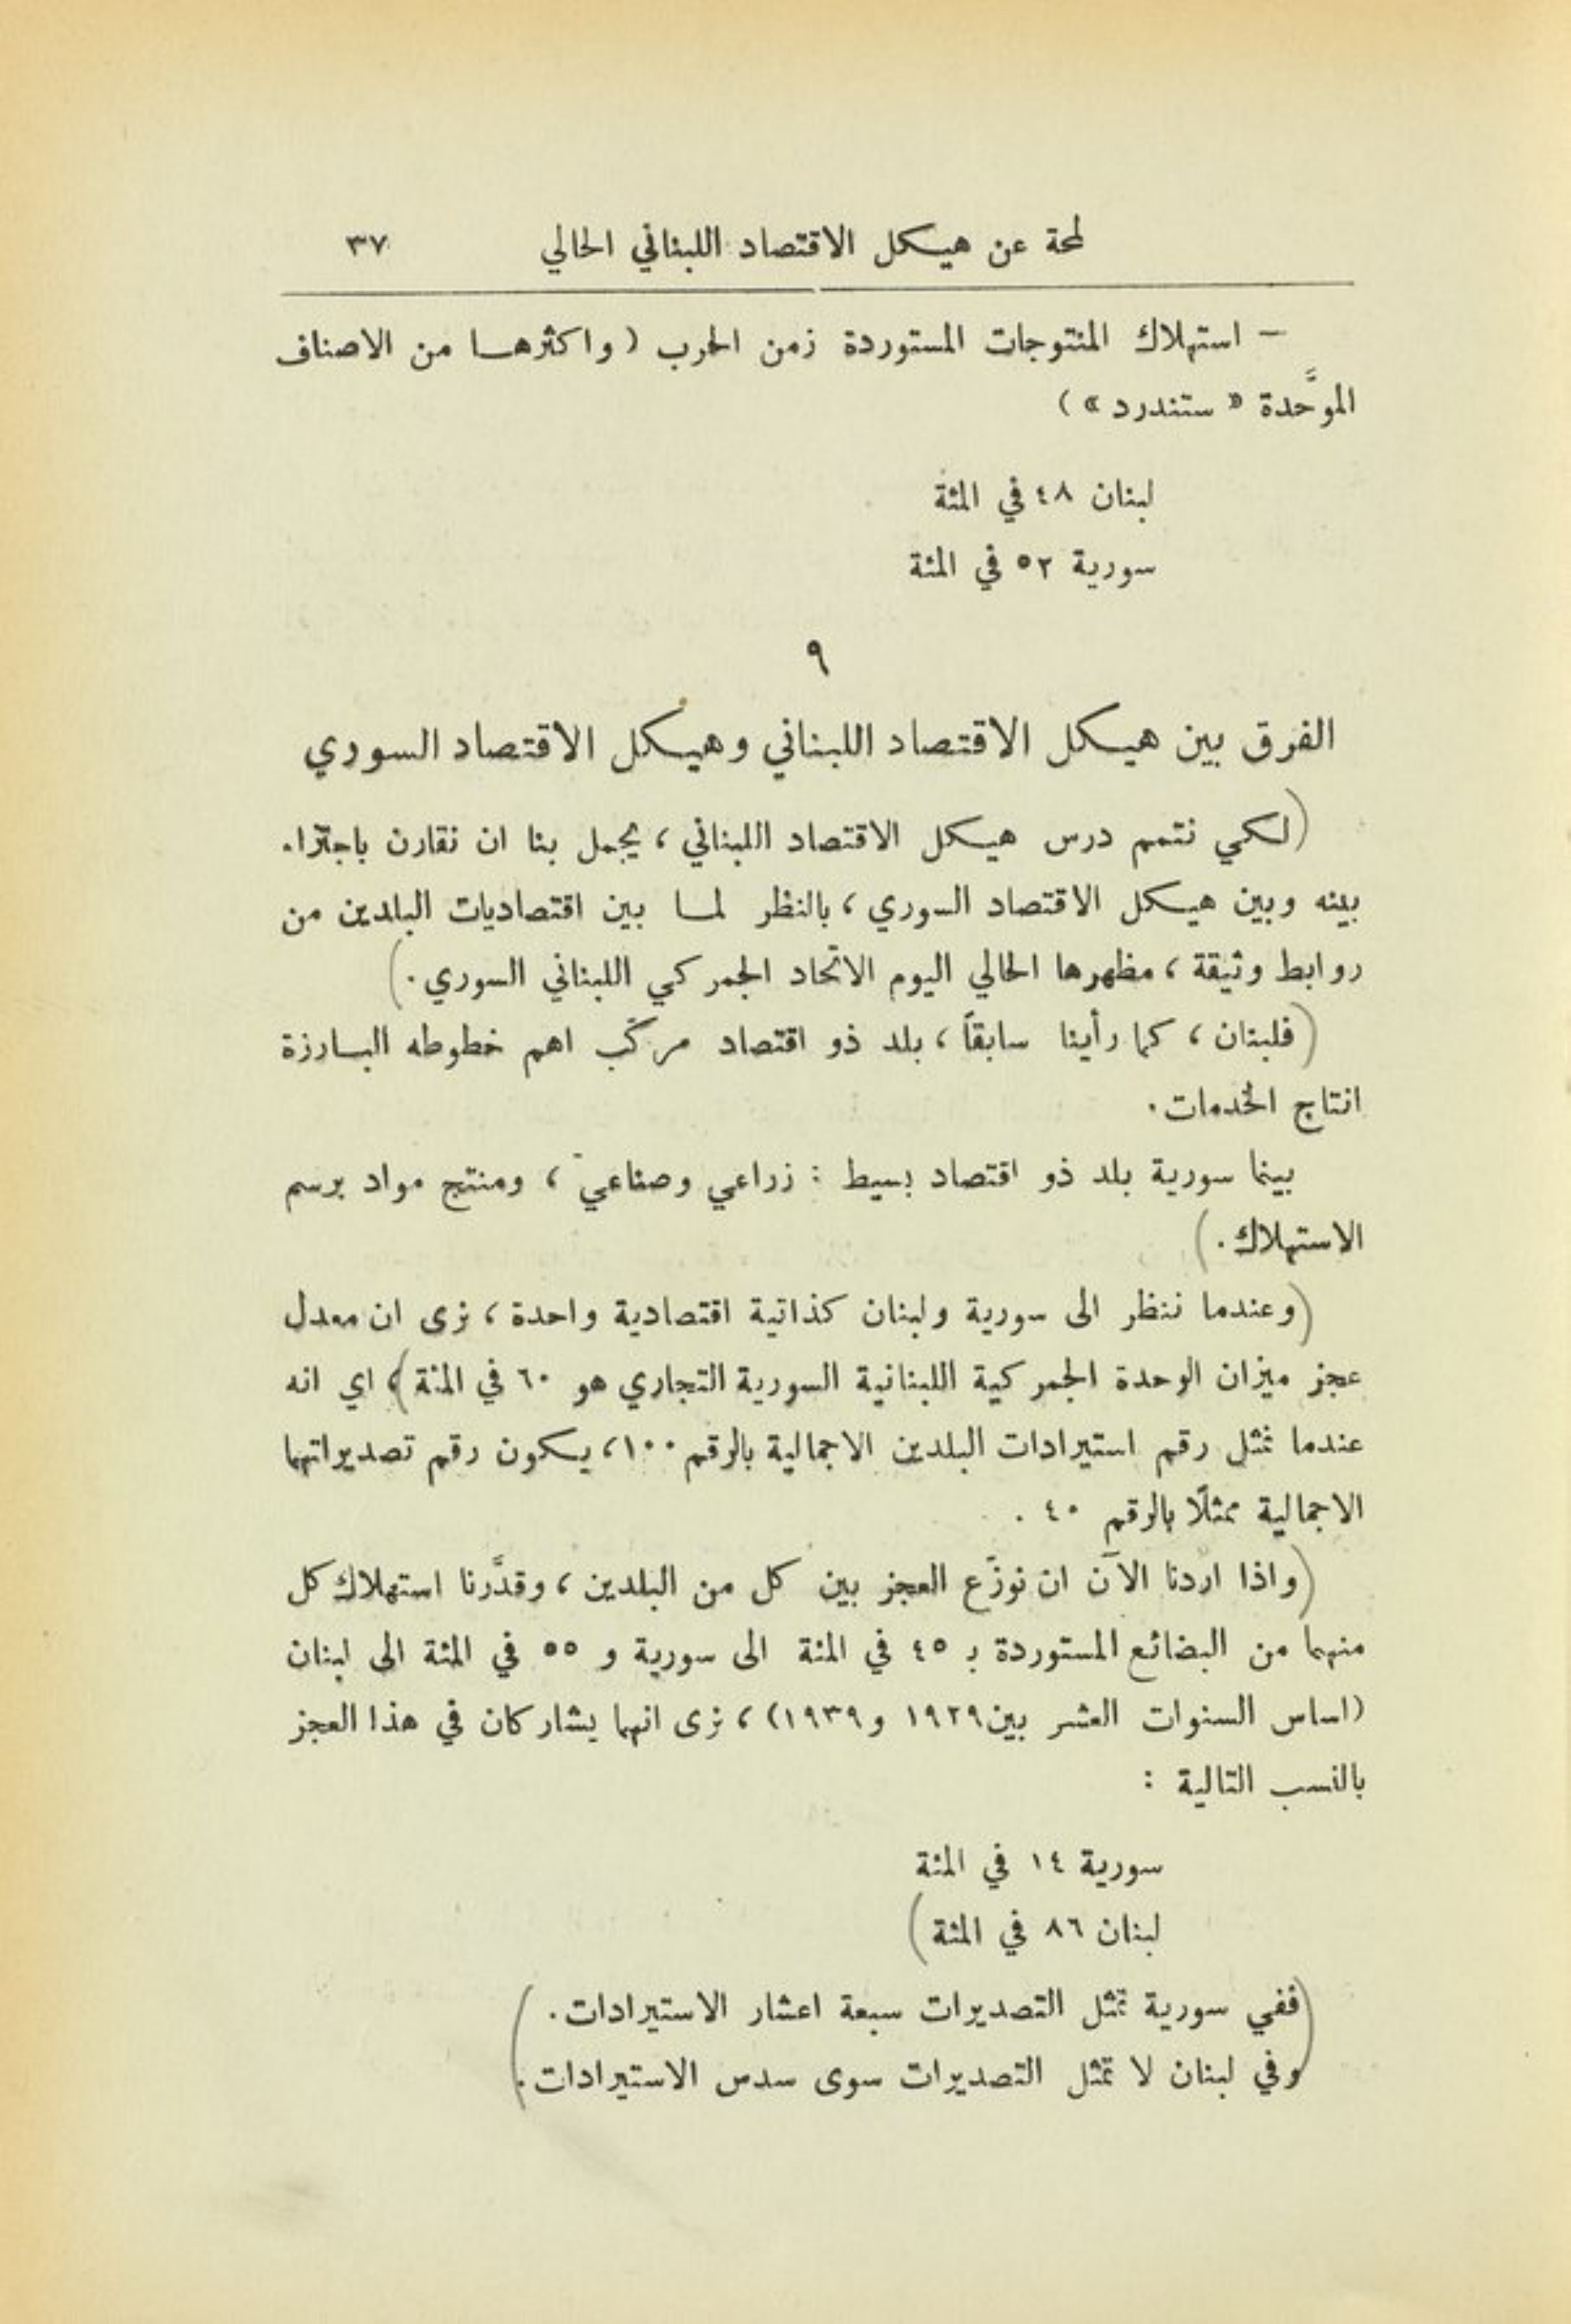 لمحة عن هيكل الاقتصاد اللبناني الحالي ٣٧
– استهلاك المنتوجات المستوردة زمن الحرب ( واكثرها من الاصناف
الموحَّدة « ستندرد » )
لبنان ٤٨ في المئة
سورية ٥٢ في المئة
٩
الفرق بين هيكل الاقتصاد اللبناني وهيكل الاقتصاد السوري
(لكي نتمم درس هيكل الاقتصاد اللبناني ، يجمل بنا ان نقارن باجتزاء
بينه وبين هيكل الاقتصاد السوري ، بالنظر لما بين اقتصاديات البلدين من
روابط وثيقة ، مظهرها الحالي اليوم الاتحاد الجمركي اللبناني السوري .)
(فلبنان ، كما رأينا سابقاً ، بلد ذو اقتصاد مركّب اهم خطوطه البارزة
انتاج الخدمات .
بينما سورية بلد ذو اقتصاد بسيط : زراعي وصناعي ، ومنتج مواد برسم
الاستهلاك .)
(وعندما ننظر الى سورية ولبنان كذاتية اقتصادية واحدة ، نرى ان معدل
عجز ميزان الوحدة الجمركية اللبنانية السورية التجاري هو ٦٠ في المئة) ، اي انه
عندما نمثل رقم استيرادات البلدين الاجمالية بالرقم ١٠٠ ، يكون رقم تصديراتهما
الاجمالية ممثلًا بالرقم ٤٠ .
(واذا اردنا الآن ان نوزّع العجز بين كل من البلدين ، وقدَّرنا استهلاك كل
منهما من البضائع المستوردة بـ ٤٥ في المئة الى سورية و ٥٥ في المئة الى لبنان
(اساس السنوات العشر بين ١٩٢٩ و ١٩٣٩) ، نرى انهما يشاركان في هذا العجز
بالنسب التالية :
سورية ١٤ في المئة
لبنان ٨٦ في المئة )
(ففي سورية تمثل التصديرات سبعة اعشار الاستيرادات .
وفي لبنان لا تمثل التصديرات سوى سدس الاستيرادات .)